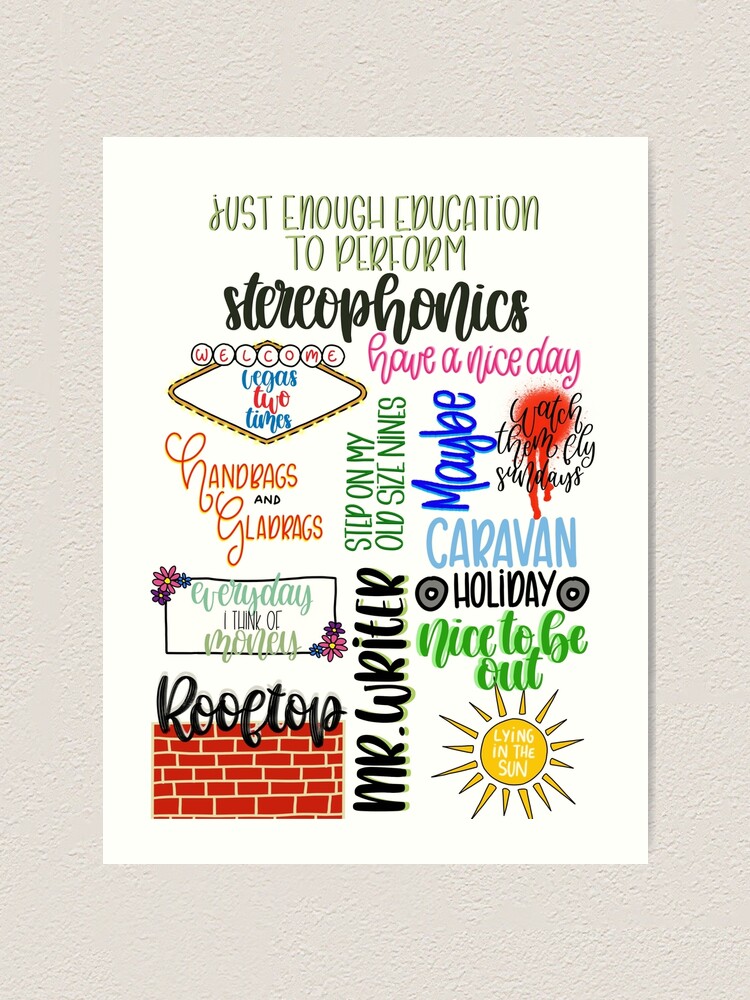 JUST ENOUGH EDUCATION
TO PERFORM
stereophonics
WELCOME
vegas
two
times
have a nice day
HANDBAGS
AND
GLADRAGS
STEP ON MY
OLD SIZE NINES
Maybe
Watch
them fly
sundays
CARAVAN
HOLIDAY
everyday
I THINK OF
money
MR.WRITER
nice to be
out
Rooftop
LYING
IN THE
SUN